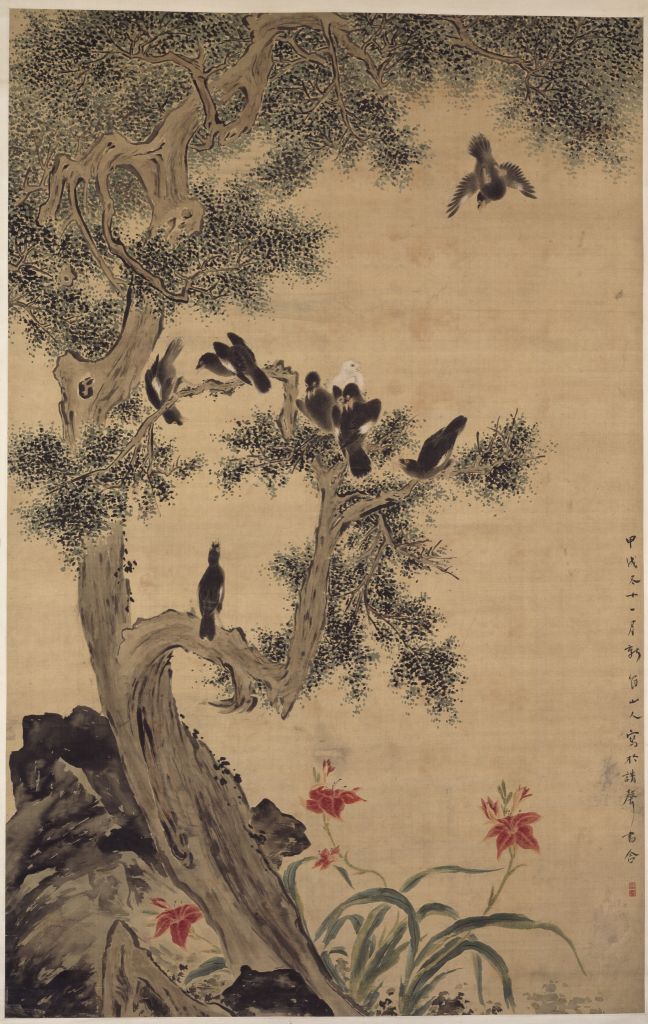 甲戌冬十一月新羅山人寫於講聲書舍